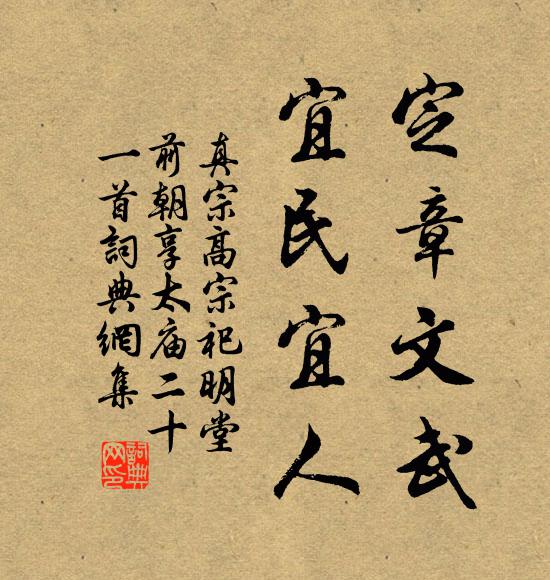 憲章文武
宜民宜人
真宗高宗祀明堂
前朝享太庙二十
一首詞典網集
詞典
网印